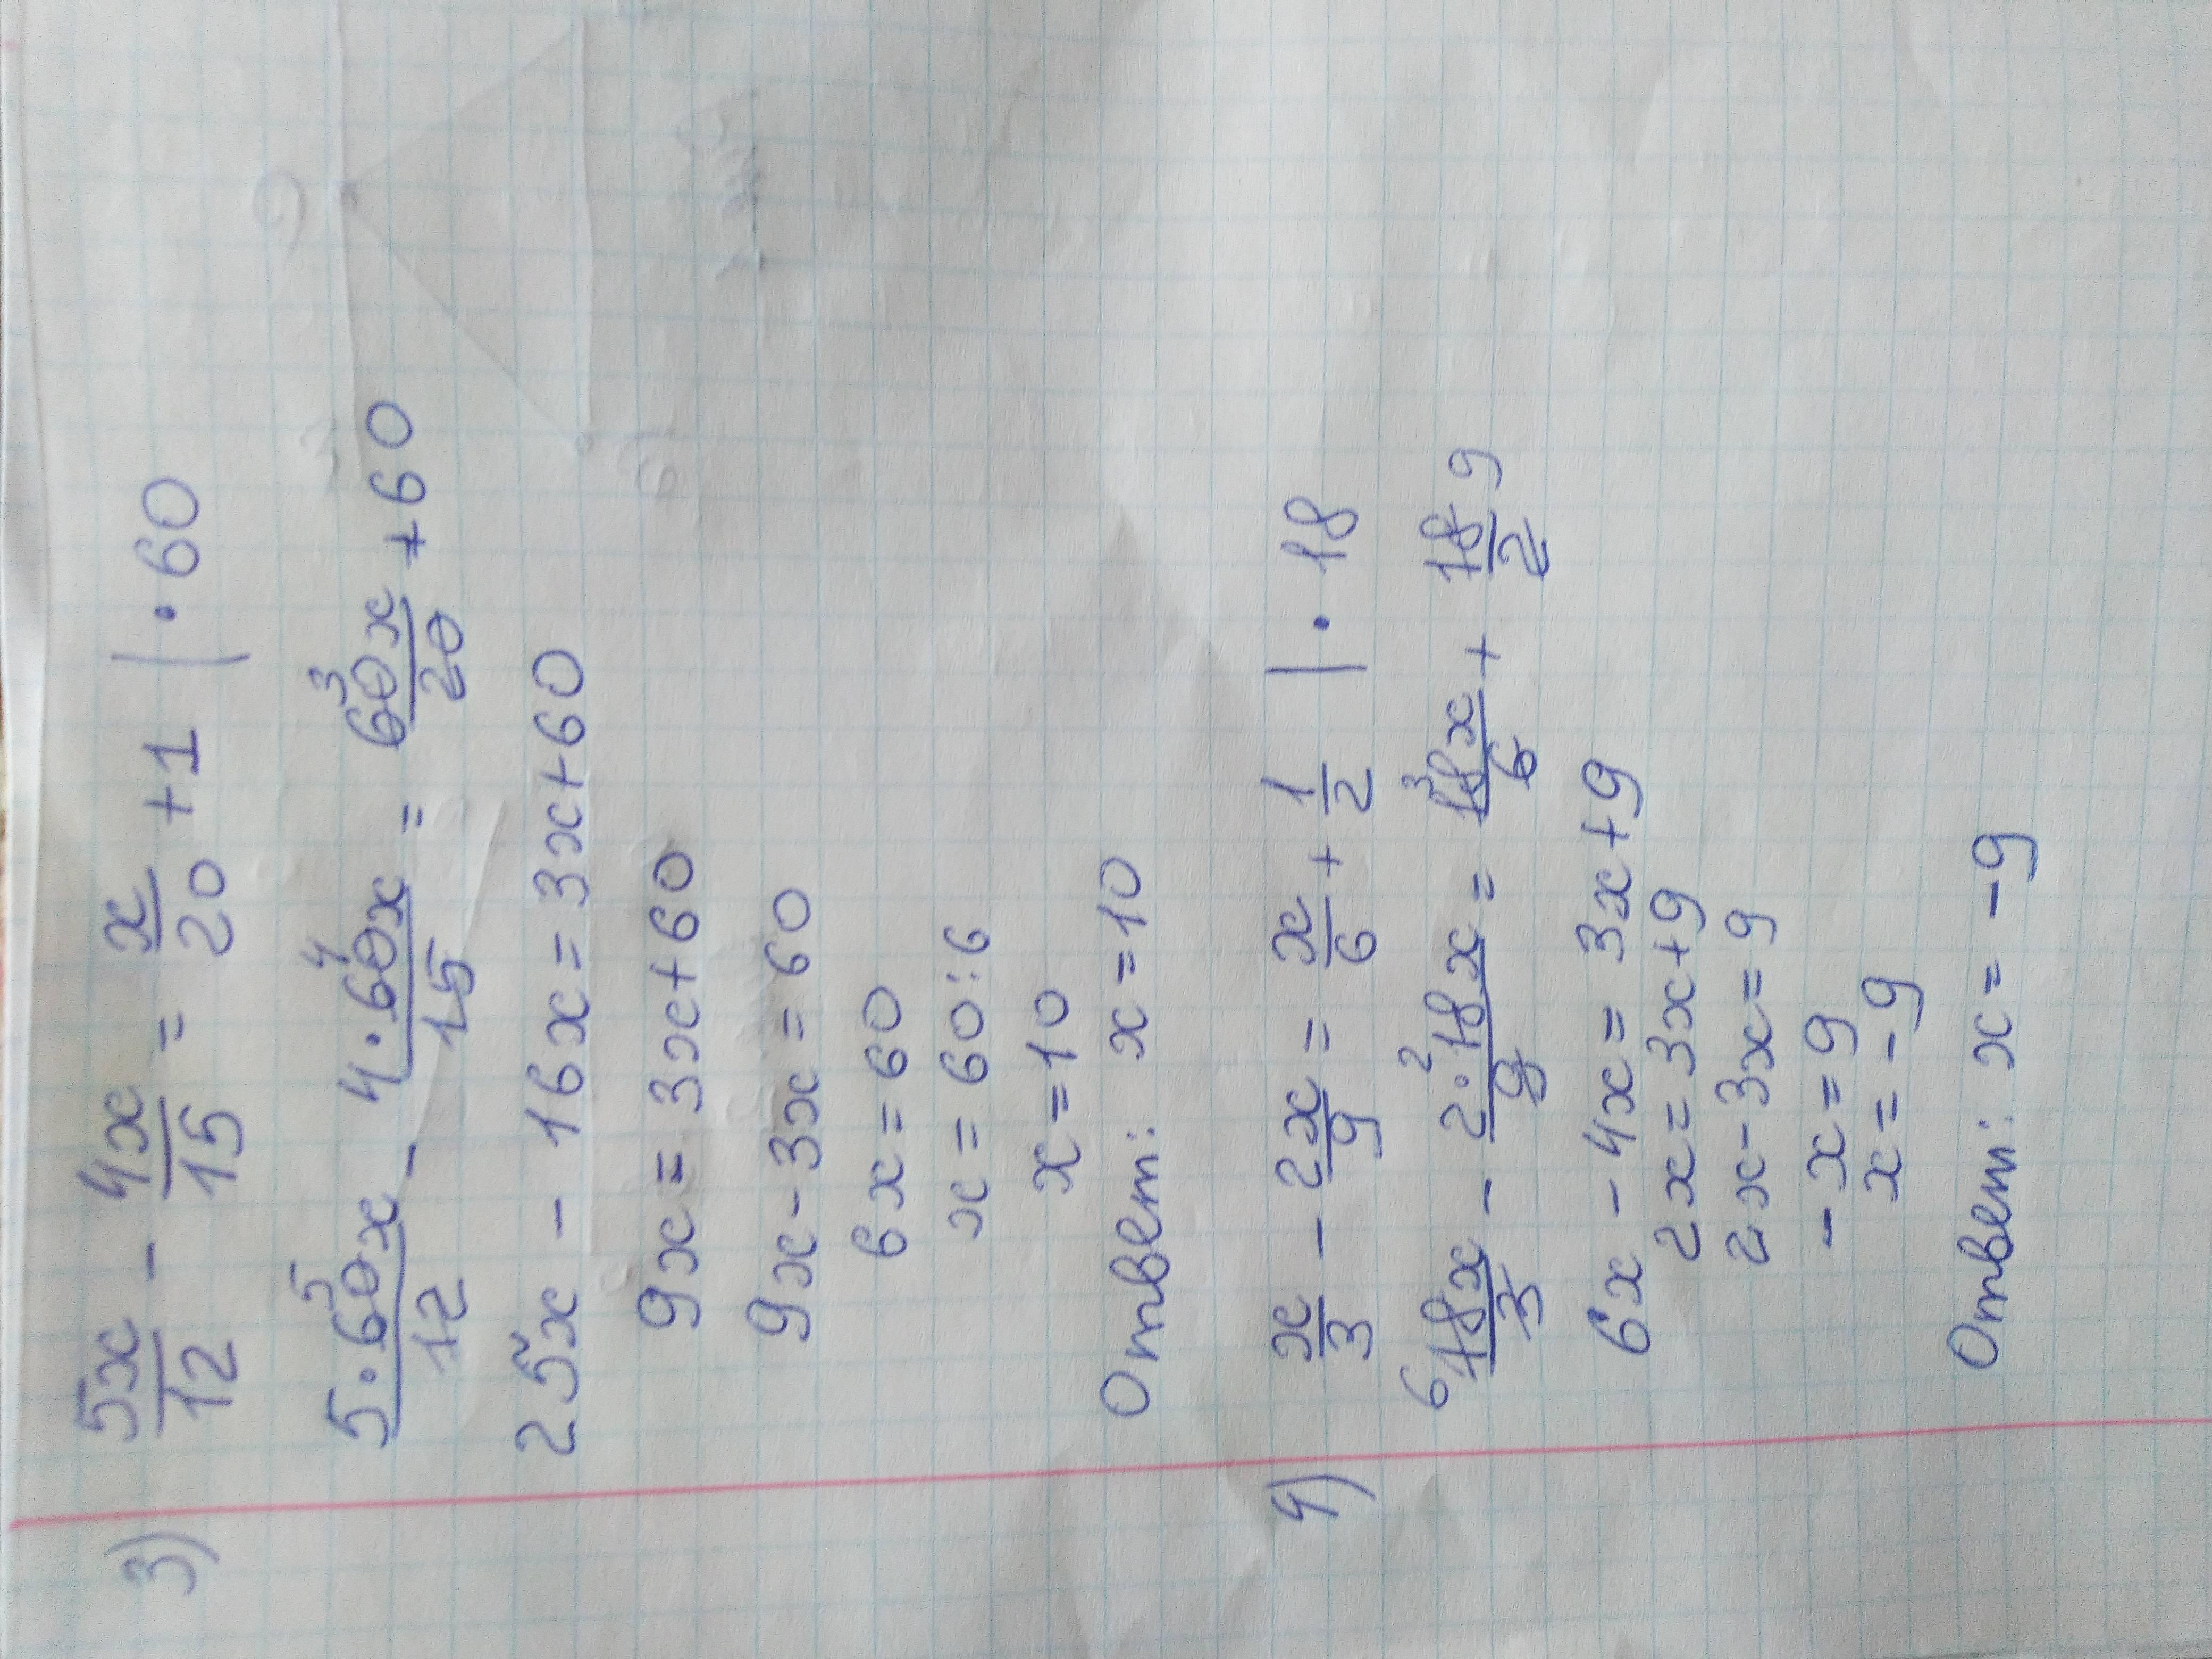 3) 5x/12 - 4x/15 = x/20 + 1 | · 60
5·60⁵x/12 - 4·60⁴x/15 = 60³x/20 + 60
25x - 16x = 3x + 60
9x = 3x + 60
9x - 3x = 60
6x = 60
x = 60 : 6
x = 10
Ответ: x = 10
4) x/3 - 2x/9 = x/6 + 1/2 | · 18
⁶18x/3 - 2·²18x/9 = 18³x/6 + 18⁹/2
6x - 4x = 3x + 9
2x = 3x + 9
2x - 3x = 9
- x = 9
x = - 9
Ответ: x = - 9